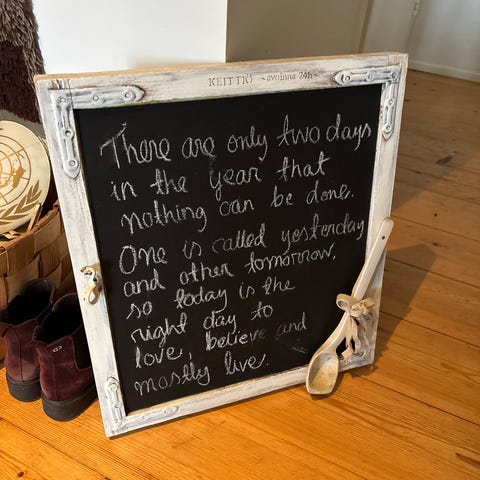 KEITTIÖ ~avoinna 24h~
There are only two days
in the year that
nothing can be done.
One is called yesterday
and other tomorrow,
so today is the
right day to
love, believe and
mostly live.